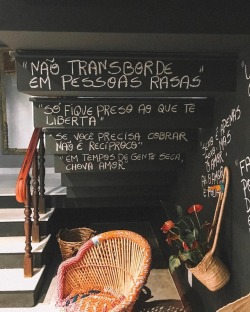 "NÃO TRANSBORDE
EM PESSOAS RASAS"
"SÓ FIQUE PRESO AO QUE TE
LIBERTA".
"SE VOCÊ PRECISA COBRAR
NÃO É RECÍPROCO"
"EM TEMPOS DE GENTE SECA,
CHOVA AMOR."